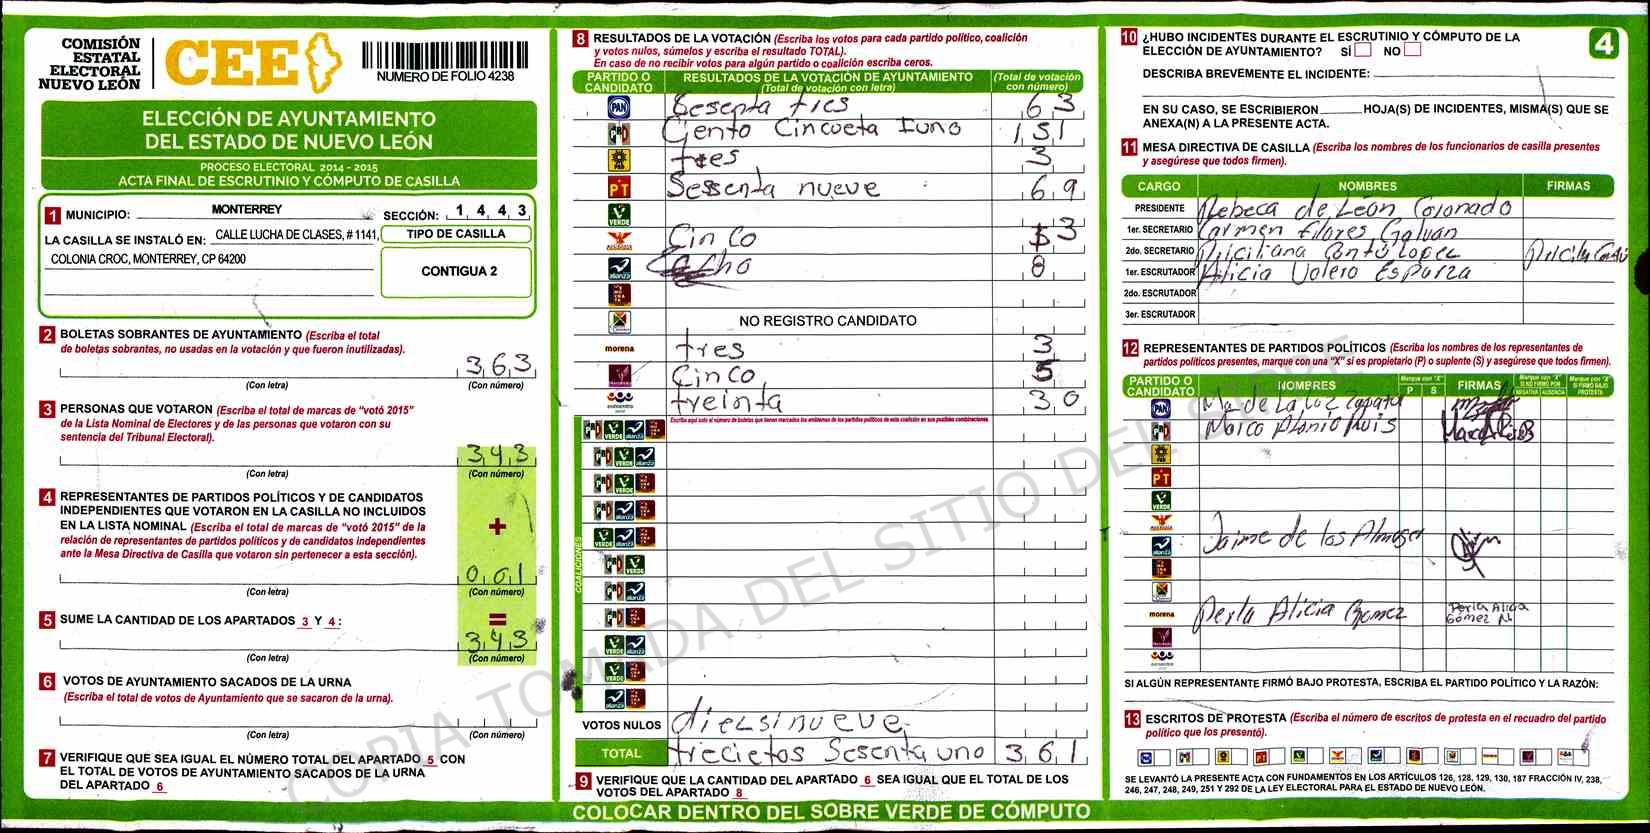 COMISIÓN
ESTATAL
ELECTORAL
NUEVO LEÓN
CEE
NUMERO DE FOLIO 4238
ELECCIÓN DE AYUNTAMIENTO
DEL ESTADO DE NUEVO LEÓN
PROCESO ELECTORAL 2014 - 2015
ACTA FINAL DE ESCRUTINIO Y CÓMPUTO DE CASILLA
1 MUNICIPIO: MONTERREY SECCIÓN: 1 4 4 3
LA CASILLA SE INSTALÓ EN: CALLE LUCHA DE CLASES, # 1141,
COLONIA CROC, MONTERREY, CP 64200
TIPO DE CASILLA
CONTIGUA 2
2 BOLETAS SOBRANTES DE AYUNTAMIENTO (Escriba el total
de boletas sobrantes, no usadas en la votación y que fueron inutilizadas).
363
(Con letra) (Con número)
3 PERSONAS QUE VOTARON (Escriba el total de marcas de "votó 2015"
de la Lista Nominal de Electores y de las personas que votaron con su
sentencia del Tribunal Electoral).
343
(Con letra) (Con número)
4 REPRESENTANTES DE PARTIDOS POLÍTICOS Y DE CANDIDATOS
INDEPENDIENTES QUE VOTARON EN LA CASILLA NO INCLUIDOS
EN LA LISTA NOMINAL (Escriba el total de marcas de "votó 2015" de la
relación de representantes de partidos políticos y de candidatos independientes
ante la Mesa Directiva de Casilla que votaron sin pertenecer a esta sección).
+
001
(Con letra) (Con número)
5 SUME LA CANTIDAD DE LOS APARTADOS 3 Y 4:
=
343
(Con letra) (Con número)
6 VOTOS DE AYUNTAMIENTO SACADOS DE LA URNA
(Escriba el total de votos de Ayuntamiento que se sacaron de la urna).
(Con letra) (Con número)
7 VERIFIQUE QUE SEA IGUAL EL NÚMERO TOTAL DEL APARTADO 5 CON
EL TOTAL DE VOTOS DE AYUNTAMIENTO SACADOS DE LA URNA
DEL APARTADO 6
8 RESULTADOS DE LA VOTACIÓN (Escriba los votos para cada partido político, coalición
y votos nulos, súmelos y escriba el resultado TOTAL).
En caso de no recibir votos para algún partido o coalición escriba ceros.
PARTIDO O CANDIDATO
RESULTADOS DE LA VOTACIÓN DE AYUNTAMIENTO
(Total de votación con letra)
(Total de votación con número)
PAN Sesenta tres 63
Ciento Cincueta Iuno 151
PRD tres 3
PT Sesenta nueve 69
VERDE
Cinco 3
alianza ocho 8
NO REGISTRO CANDIDATO
morena tres 3
Cinco 5
encuentro treinta 30
Escriba aquí solo el número de boletas que tienen marcados los emblemas de los partidos políticos de esta coalición en sus posibles combinaciones.
COALICIONES
VOTOS NULOS dielsinueve
TOTAL trecietos Sesenta uno 361
9 VERIFIQUE QUE LA CANTIDAD DEL APARTADO 6 SEA IGUAL QUE EL TOTAL DE LOS
VOTOS DEL APARTADO 8
COLOCAR DENTRO DEL SOBRE VERDE DE CÓMPUTO
4
10 ¿HUBO INCIDENTES DURANTE EL ESCRUTINIO Y CÓMPUTO DE LA
ELECCIÓN DE AYUNTAMIENTO? SÍ NO
DESCRIBA BREVEMENTE EL INCIDENTE:
EN SU CASO, SE ESCRIBIERON HOJA(S) DE INCIDENTES, MISMA(S) QUE SE
ANEXA(N) A LA PRESENTE ACTA.
11 MESA DIRECTIVA DE CASILLA (Escriba los nombres de los funcionarios de casilla presentes
y asegúrese que todos firmen).
CARGO NOMBRES FIRMAS
PRESIDENTE Rebeca de León Coronado
1er. SECRETARIO Carmen Flores Galvan
2do. SECRETARIO Priciliana Cantú Lopez
1er. ESCRUTADOR Alicia Valero Esparza
2do. ESCRUTADOR
3er. ESCRUTADOR
12 REPRESENTANTES DE PARTIDOS POLÍTICOS (Escriba los nombres de los representantes de
partidos políticos presentes, marque con una "X" si es propietario (P) o suplente (S) y asegúrese que todos firmen).
PARTIDO O CANDIDATO NOMBRES Marque con "X" P S FIRMAS
Marque con "X" SI NO FIRMÓ POR NEGATIVA AUSENCIA
Marque con "X" SI FIRMÓ BAJO PROTESTA
PAN Ma de La Luz Zapata
Marco Antonio Ruis
PT
VERDE
alianza Jaime de los
morena Perla Alicia Gomez Perla Alicia
Gomez N
SI ALGÚN REPRESENTANTE FIRMÓ BAJO PROTESTA, ESCRIBA EL PARTIDO POLÍTICO Y LA RAZÓN:
13 ESCRITOS DE PROTESTA (Escriba el número de escritos de protesta en el recuadro del partido
político que los presentó).
SE LEVANTÓ LA PRESENTE ACTA CON FUNDAMENTOS EN LOS ARTÍCULOS 126, 128, 129, 130, 187 FRACCIÓN IV, 238,
246, 247, 248, 249, 251 Y 292 DE LA LEY ELECTORAL PARA EL ESTADO DE NUEVO LEÓN.
COPIA TOMADA DEL SITIO DEL SIPRE